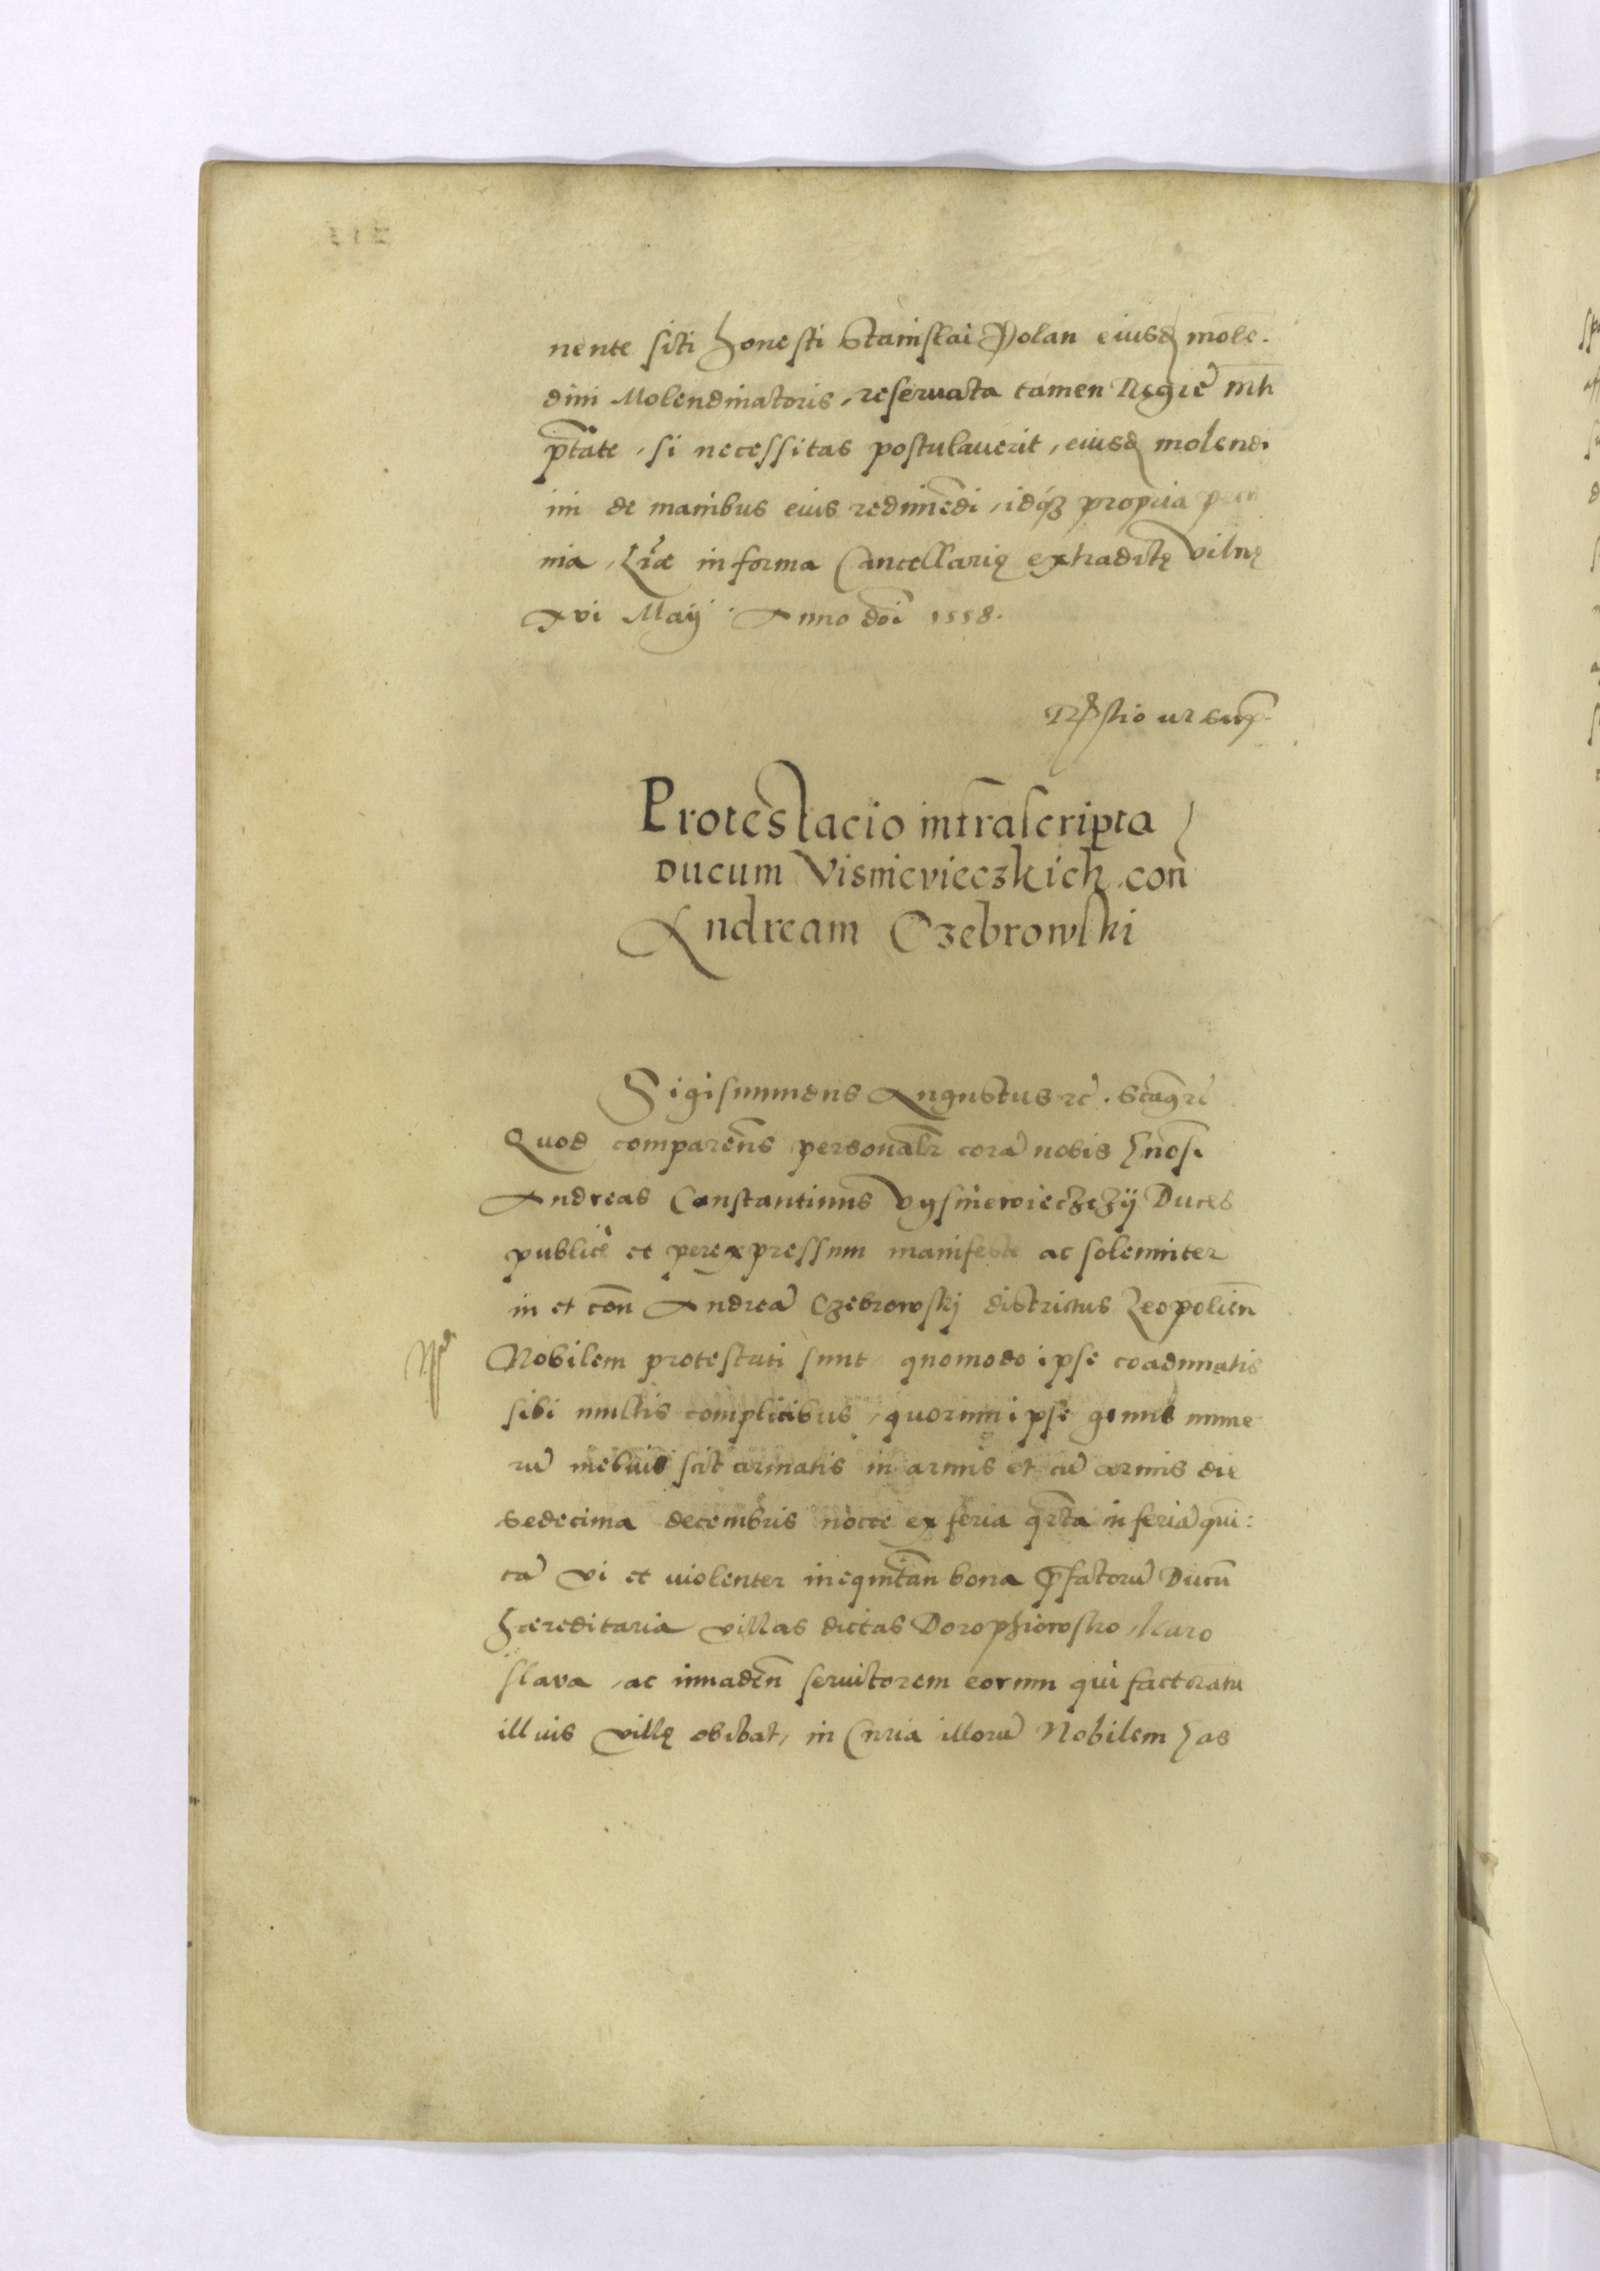 nente siti honesti Stanislai Polan eiusdē mole-
dini Molendinatoris, reservata tamen Regie Mti
ptāte, si necessitas postulaverit, eiusdē molendi
ni de manibus eius redimēdi, idqȝ propria pecu
nia, Lr̄æ in forma Cancellarię extradictę Vilnę
xvi Maij Anno dōi 1558.
Protestacio infrascripta
Ducum Visnievieczkich con̄
Andream Czebrowski
Sigismundus Augustus rc̄.
Quod comparēns personalr̄ corā nobis
Andreas Constantinus Vysniewieczczij Duces
publicè et per expressum manifeste ac solenniter
in et con̄ Andreā Czebrowskj districtus Leopolien̄
Nobilem protestati sunt, quomodo ipse coadunatis
sibi multis complicibus, quorum ipse nume
rū melius scit armatis in armis et cū armis die
sedecima decembris nocte ex feria qrta in feriā quī:
tā vi et violenter ineqūitan̄ bona pfactorū Ducū
hæreditaria villas dictas Dorophiowstro, Karo
slava, ac invadēn servitorem eorum qui factoratū
illius villę obibat, in Curia illorū Nobilem Has